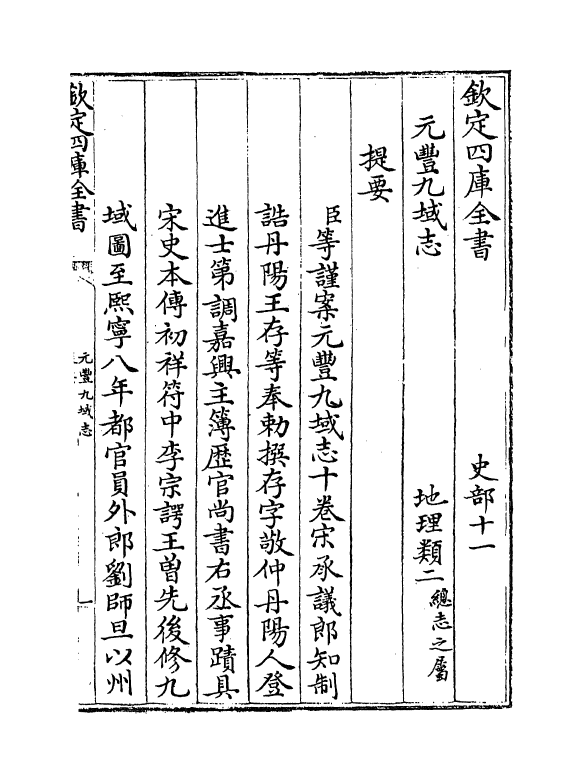 欽定四庫全書 史部十一
元豐九域志 地理類二總志之屬
提要
臣等謹案元豐九域志十卷宋承議郎知制
誥丹陽王存等奉勅撰存字敬仲丹陽人登
進士第調嘉興主簿歴官尚書右丞事蹟具
宋史本傳初祥符中李宗諤王曽先後修九
域圖至熙寧八年都官員外郎劉師旦以州
欽定四庫全書
元豐九域志
一